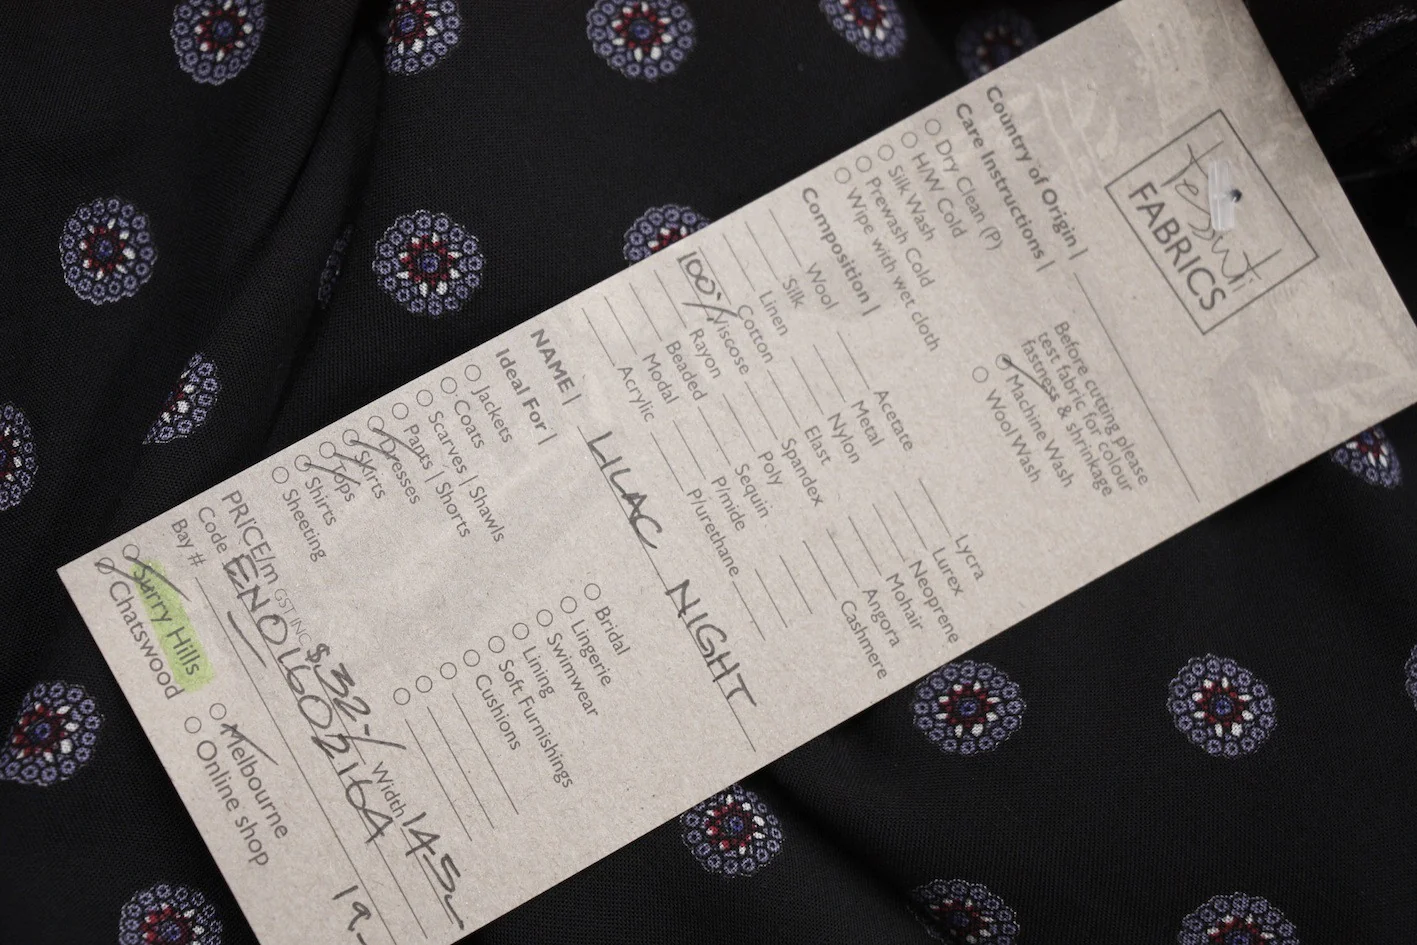 tessuti
FABRICS
Country of Origin |
Care Instructions |
Dry Clean (P)
H/W Cold
Silk Wash
Prewash Cold
Wipe with wet cloth
Before cutting please
test fabric for colour
fastness & shrinkage
Machine Wash
Wool Wash
Composition |
Wool
Silk
Linen
Cotton
100% Viscose
Rayon
Beaded
Modal
Acrylic
Acetate
Metal
Nylon
Elast
Spandex
Poly
Sequin
P/mide
P/urethane
Lycra
Lurex
Neoprene
Mohair
Angora
Cashmere
NAME | LILAC NIGHT
Ideal For |
Jackets
Coats
Scarves | Shawls
Pants | Shorts
Dresses
Skirts
Tops
Shirts
Sheeting
Bridal
Lingerie
Swimwear
Lining
Soft Furnishings
Cushions
PRICE/m GST INC $32-/ Width 145
Code ENO1602164
Bay # 19
Surry Hills
Chatswood
Melbourne
Online shop